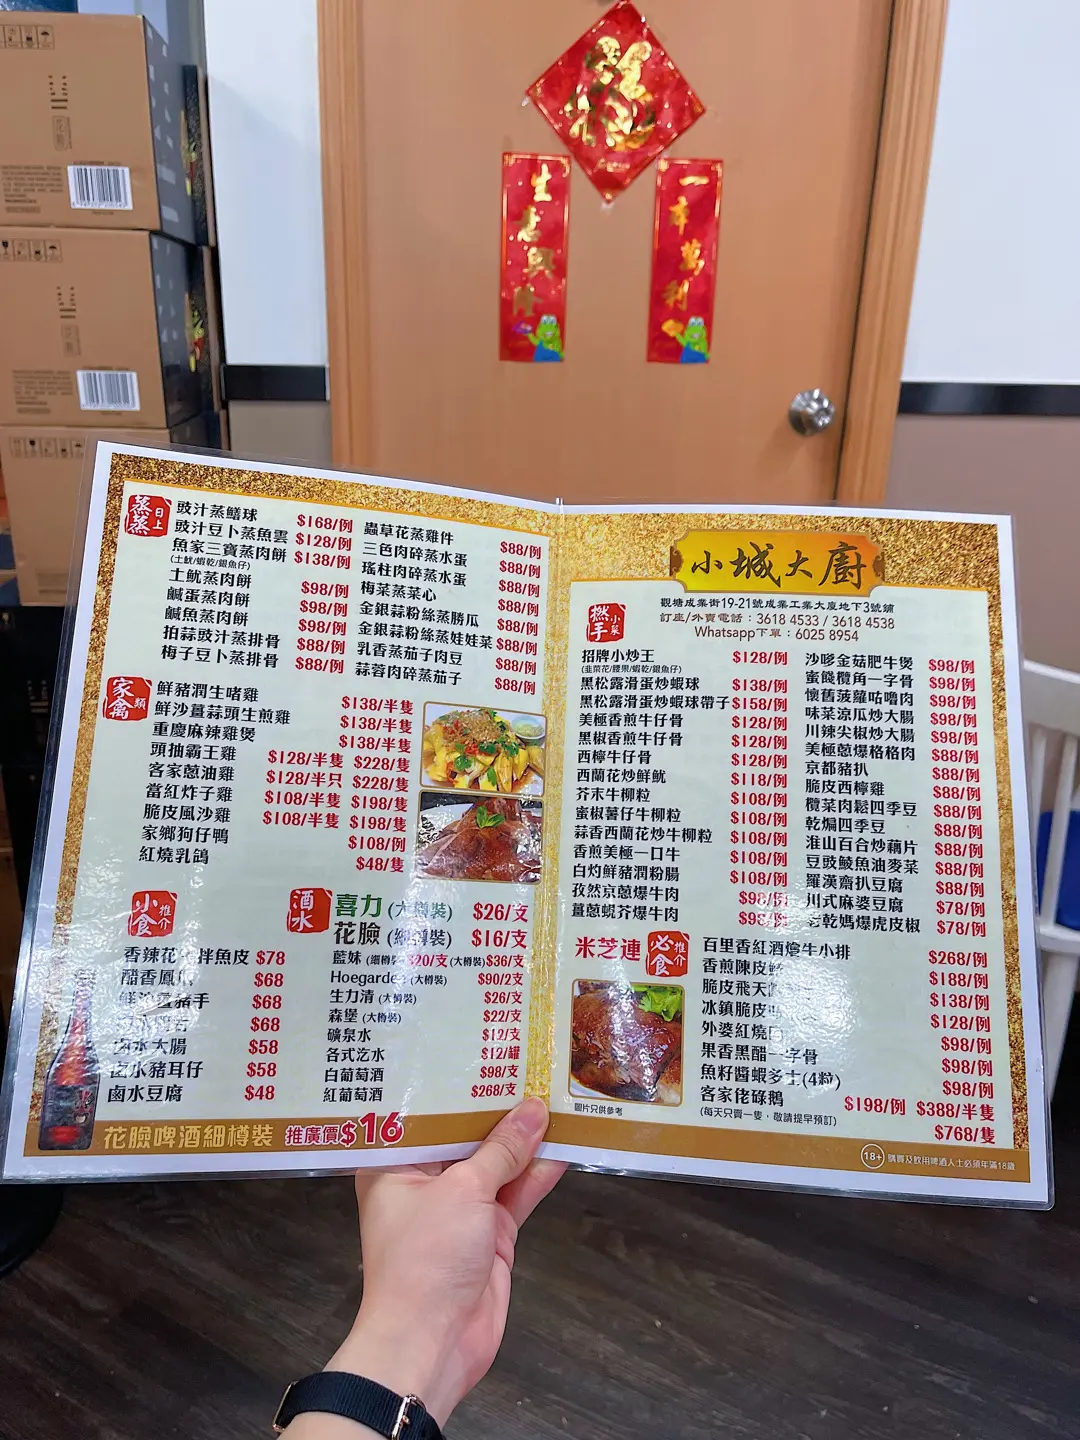 生意興隆
一本萬利
蒸蒸日上
豉汁蒸鱔球 $168/例
豉汁豆卜蒸魚雲 $128/例
魚家三寶蒸肉餅 $138/例
(土魷/蝦乾/銀魚仔)
土魷蒸肉餅 $98/例
鹹蛋蒸肉餅 $98/例
鹹魚蒸肉餅 $98/例
拍蒜豉汁蒸排骨 $88/例
梅子豆卜蒸排骨 $88/例
蟲草花蒸雞件 $88/例
三色肉碎蒸水蛋 $88/例
瑤柱肉碎蒸水蛋 $88/例
梅菜蒸菜心 $88/例
金銀蒜粉絲蒸勝瓜 $88/例
金銀蒜粉絲蒸娃娃菜 $88/例
乳香蒸茄子肉豆 $88/例
蒜蓉肉碎蒸茄子 $88/例
家禽類
鮮豬潤生啫雞 $138/半隻
鮮沙薑蒜頭生煎雞 $138/半隻
重慶麻辣雞煲 $138/半隻
頭抽霸王雞 $128/半隻 $228/隻
客家蔥油雞 $128/半只 $228/隻
當紅炸子雞 $108/半隻 $198/隻
脆皮風沙雞 $108/半隻 $198/隻
家鄉狗仔鴨 $108/例
紅燒乳鴿 $48/隻
小食推介
香辣花 拌魚皮 $78
醋香鳳爪 $68
豬手 $68
$68
鹵水大腸 $58
鹵水豬耳仔 $58
鹵水豆腐 $48
酒水
喜力 (大樽裝) $26/支
花臉 (細樽裝) $16/支
藍妹 (細樽裝) $20/支 (大樽裝) $36/支
Hoegarden (大樽裝) $90/2支
生力清 (大樽裝) $26/支
森堡 (大樽裝) $22/支
礦泉水 $12/支
各式汽水 $12/罐
白葡萄酒 $98/支
紅葡萄酒 $268/支
花臉啤酒細樽裝 推廣價$16
小城大廚
觀塘成業街19-21號成業工業大廈地下3號舖
訂座/外賣電話：3618 4533 / 3618 4538
Whatsapp下單：6025 8954
撚手小菜
招牌小炒王 $128/例
(韭菜花/腰果/蝦乾/銀魚仔)
黑松露滑蛋炒蝦球 $138/例
黑松露滑蛋炒蝦球帶子 $158/例
美極香煎牛仔骨 $128/例
黑椒香煎牛仔骨 $128/例
西檸牛仔骨 $128/例
西蘭花炒鮮魷 $118/例
芥末牛柳粒 $108/例
蜜椒薯仔牛柳粒 $108/例
蒜香西蘭花炒牛柳粒 $108/例
香煎美極一口牛 $108/例
白灼鮮豬潤粉腸 $108/例
孜然京蔥爆牛肉 $98/例
薑蔥蜆芥爆牛肉 $98/例
沙嗲金菇肥牛煲 $98/例
蜜餞欖角一字骨 $98/例
懷舊菠蘿咕嚕肉 $98/例
味菜涼瓜炒大腸 $98/例
川辣尖椒炒大腸 $98/例
美極蔥爆格格肉 $88/例
京都豬扒 $88/例
脆皮西檸雞 $88/例
欖菜肉鬆四季豆 $88/例
乾煸四季豆 $88/例
淮山百合炒藕片 $88/例
豆豉鯪魚油麥菜 $88/例
羅漢齋扒豆腐 $88/例
川式麻婆豆腐 $78/例
老乾媽爆虎皮椒 $78/例
米芝連 必食推介
百里香紅酒燴牛小排 $268/例
香煎陳皮 $188/例
脆皮飛天 $138/例
冰鎮脆皮 $128/例
外婆紅燒肉 $98/例
果香黑醋一字骨 $98/例
魚籽醬蝦多士(4粒) $98/例
客家佬碌鵝 $198/例 $388/半隻
(每天只賣一隻，敬請提早預訂) $768/隻
圖片只供參考
18+ 購買及飲用啤酒人士必須年滿18歲